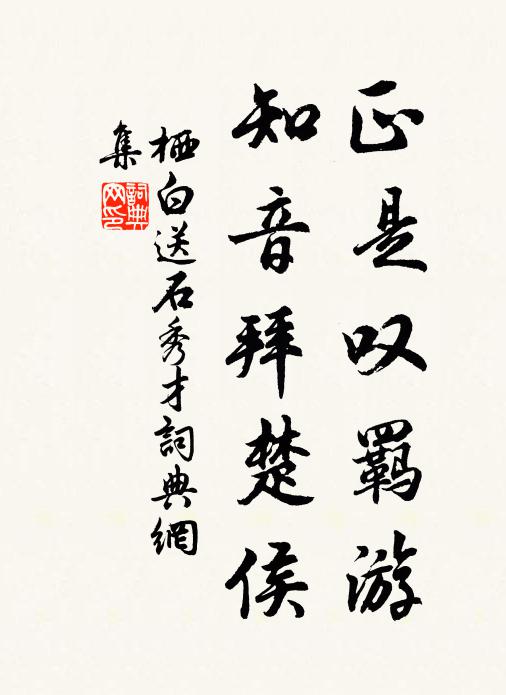 正是叹羁游
知音拜楚侯
栖白送石秀才詞典網
集
詞典
网印